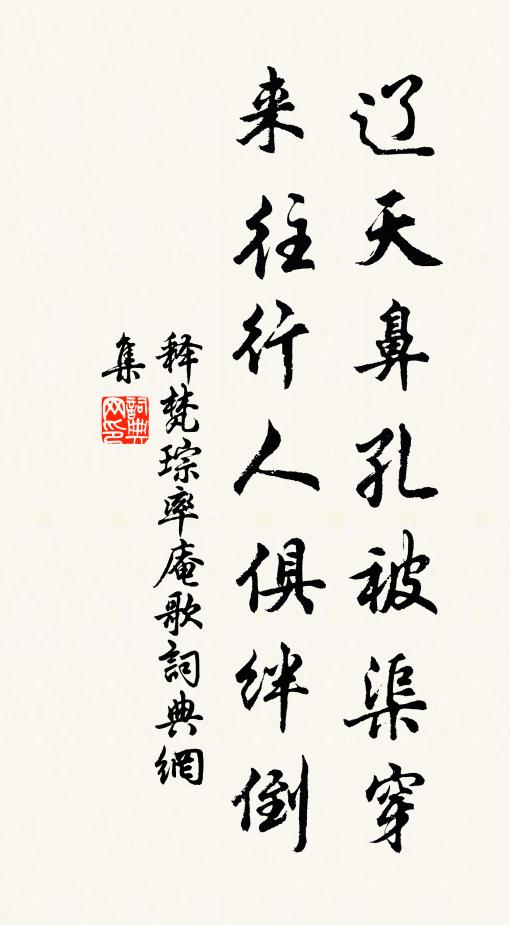 辽天鼻孔被渠穿
来往行人俱绊倒
释梵琮率庵歌詞典網
集
詞典网印